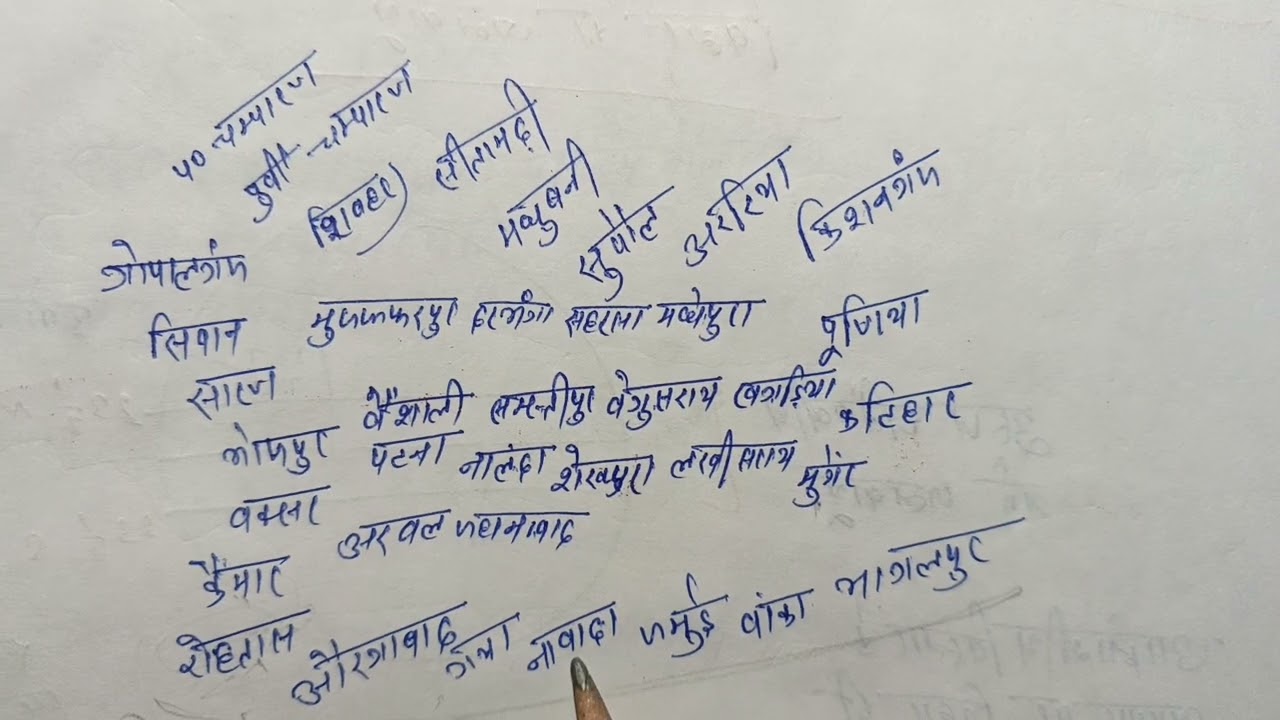 प० चम्पारण
पुर्वी चम्पारण
शिवहर
सीतामढ़ी
मधुबनी
सुपौल
अररिया
किशनगंज
गोपालगंज
सिवान मुजफ्फरपुर दरभंगा सहरसा मधेपुरा पूर्णिया
सारण वैशाली समस्तीपुर वेगुसराय खगड़िया कटिहार
भोजपुर पटना नालंदा शेखपुरा लखीसराय मुगेंर
वक्सर अरवल जहानाबाद
कैमार
रोहतास औरंगाबाद गया नावादा जमुई वांका भागलपुर